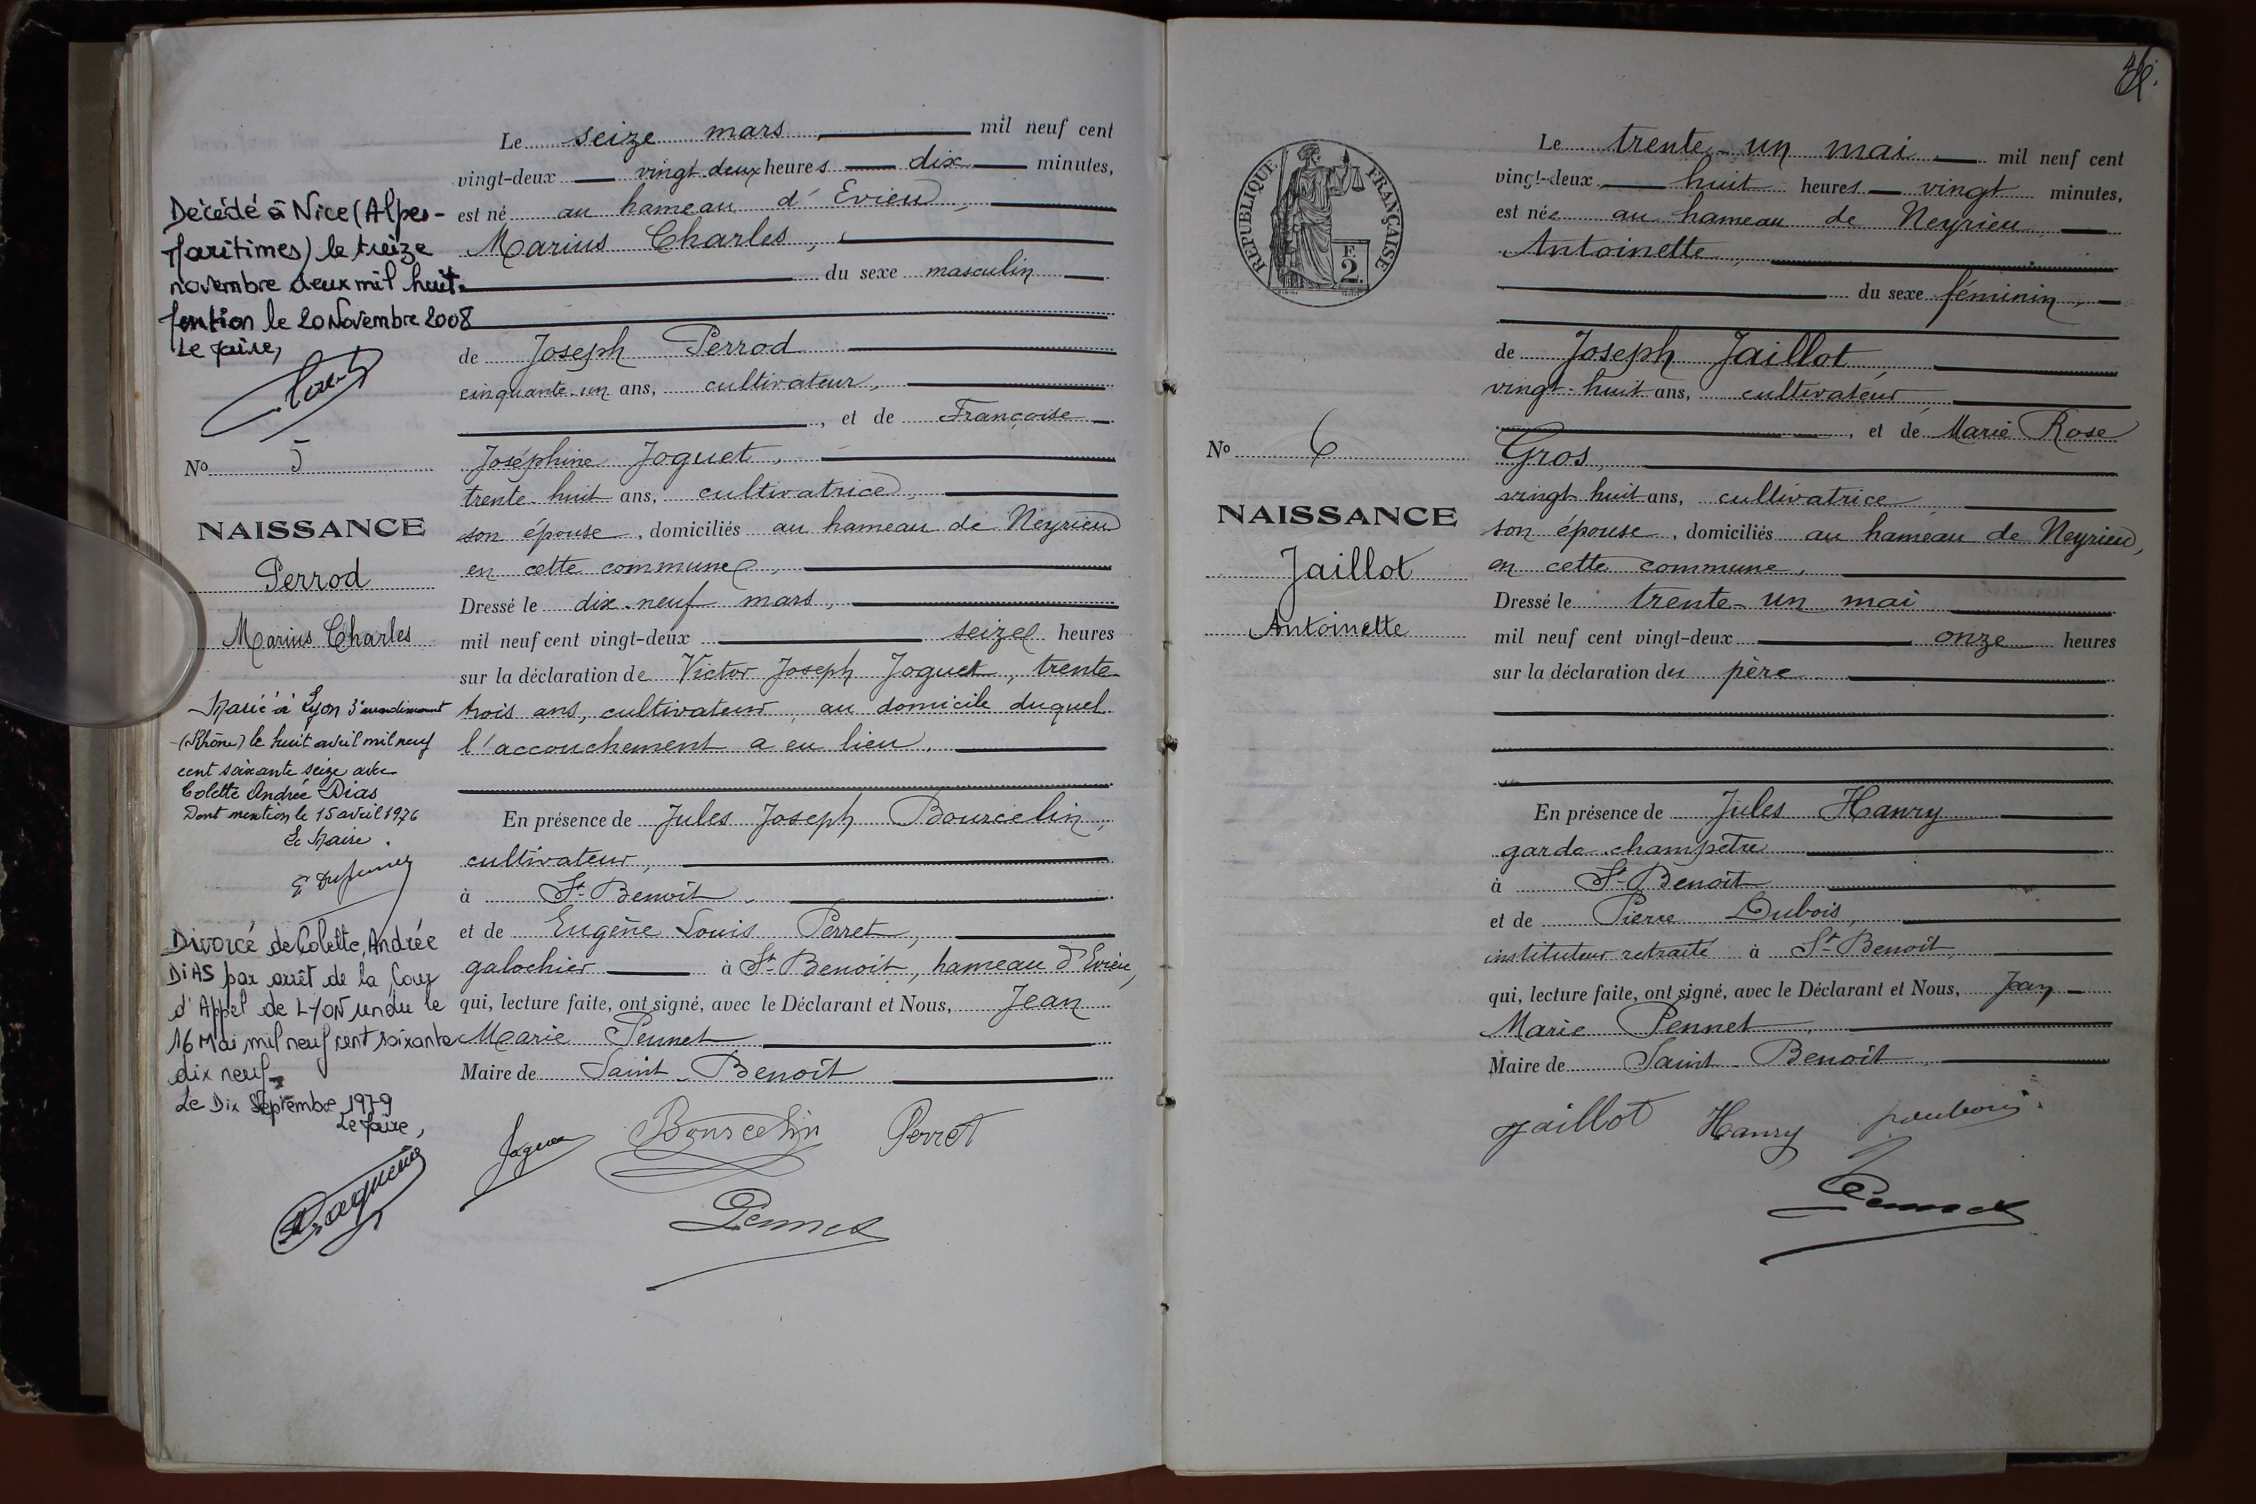 Décédé à Nice (Alpes-
Maritimes) le treize
novembre deux mil huit.
Mention le 20 Novembre 2008
Le Maire,
No 5
NAISSANCE
Perrod
Marius Charles
Marié à Lyon 3e arrondissement
(Rhône) le huit avril mil neuf
cent soixante seize avec
Colette Andrée Dias
Dont mention le 15 avril 1976
Le Maire.
Divorcé de Colette, Andrée
DIAS par arrêt de la Cour
d'Appel de LYON rendu le
16 Mai mil neuf cent soixante
dix neuf
Le Dix Septembre 1979
Le Maire,
Le seize mars, mil neuf cent
vingt-deux vingt deux heures dix minutes,
est né au hameau d'Evieu,
Marius Charles,
du sexe masculin
de Joseph Perrod
cinquante-un ans, cultivateur,
, et de Françoise
Joséphine Joguet,
trente-huit ans, cultivatrice,
son épouse, domiciliés au hameau de Neyrieu
en cette commune,
Dressé le dix-neuf mars,
mil neuf cent vingt-deux seize heures
sur la déclaration de Victor Joseph Joguet, trente
trois ans, cultivateur, au domicile duquel
l'accouchement a eu lieu.
En présence de Jules Joseph Bourcelin,
cultivateur,
à St-Benoit,
et de Eugène Louis Perret,
galochier à St-Benoit, hameau d'Evieu,
qui, lecture faite, ont signé, avec le Déclarant et Nous, Jean
Marie Pennet
Maire de Saint-Benoît
Joguet Bourcelin Perret
Pennet
REPUBLIQUE FRANÇAISE
F.
2.
No 6
NAISSANCE
Jaillot
Antoinette
Le trente-un mai mil neuf cent
vingt-deux, huit heures vingt minutes,
est née au hameau de Neyrieu
Antoinette,
du sexe féminin,
de Joseph Jaillot,
vingt-huit ans, cultivateur
, et de Marie Rose
Gros,
vingt-huit ans, cultivatrice
son épouse, domiciliés au hameau de Neyrieu,
en cette commune,
Dressé le trente-un mai
mil neuf cent vingt-deux onze heures
sur la déclaration du père
En présence de Jules Hanry
garde champêtre
à St-Benoît
et de Pierre Dubois,
instituteur retraité à St-Benoît,
qui, lecture faite, ont signé, avec le Déclarant et Nous, Jean
Marie Pennet,
Maire de Saint-Benoît,
Jaillot Hanry
Pennet